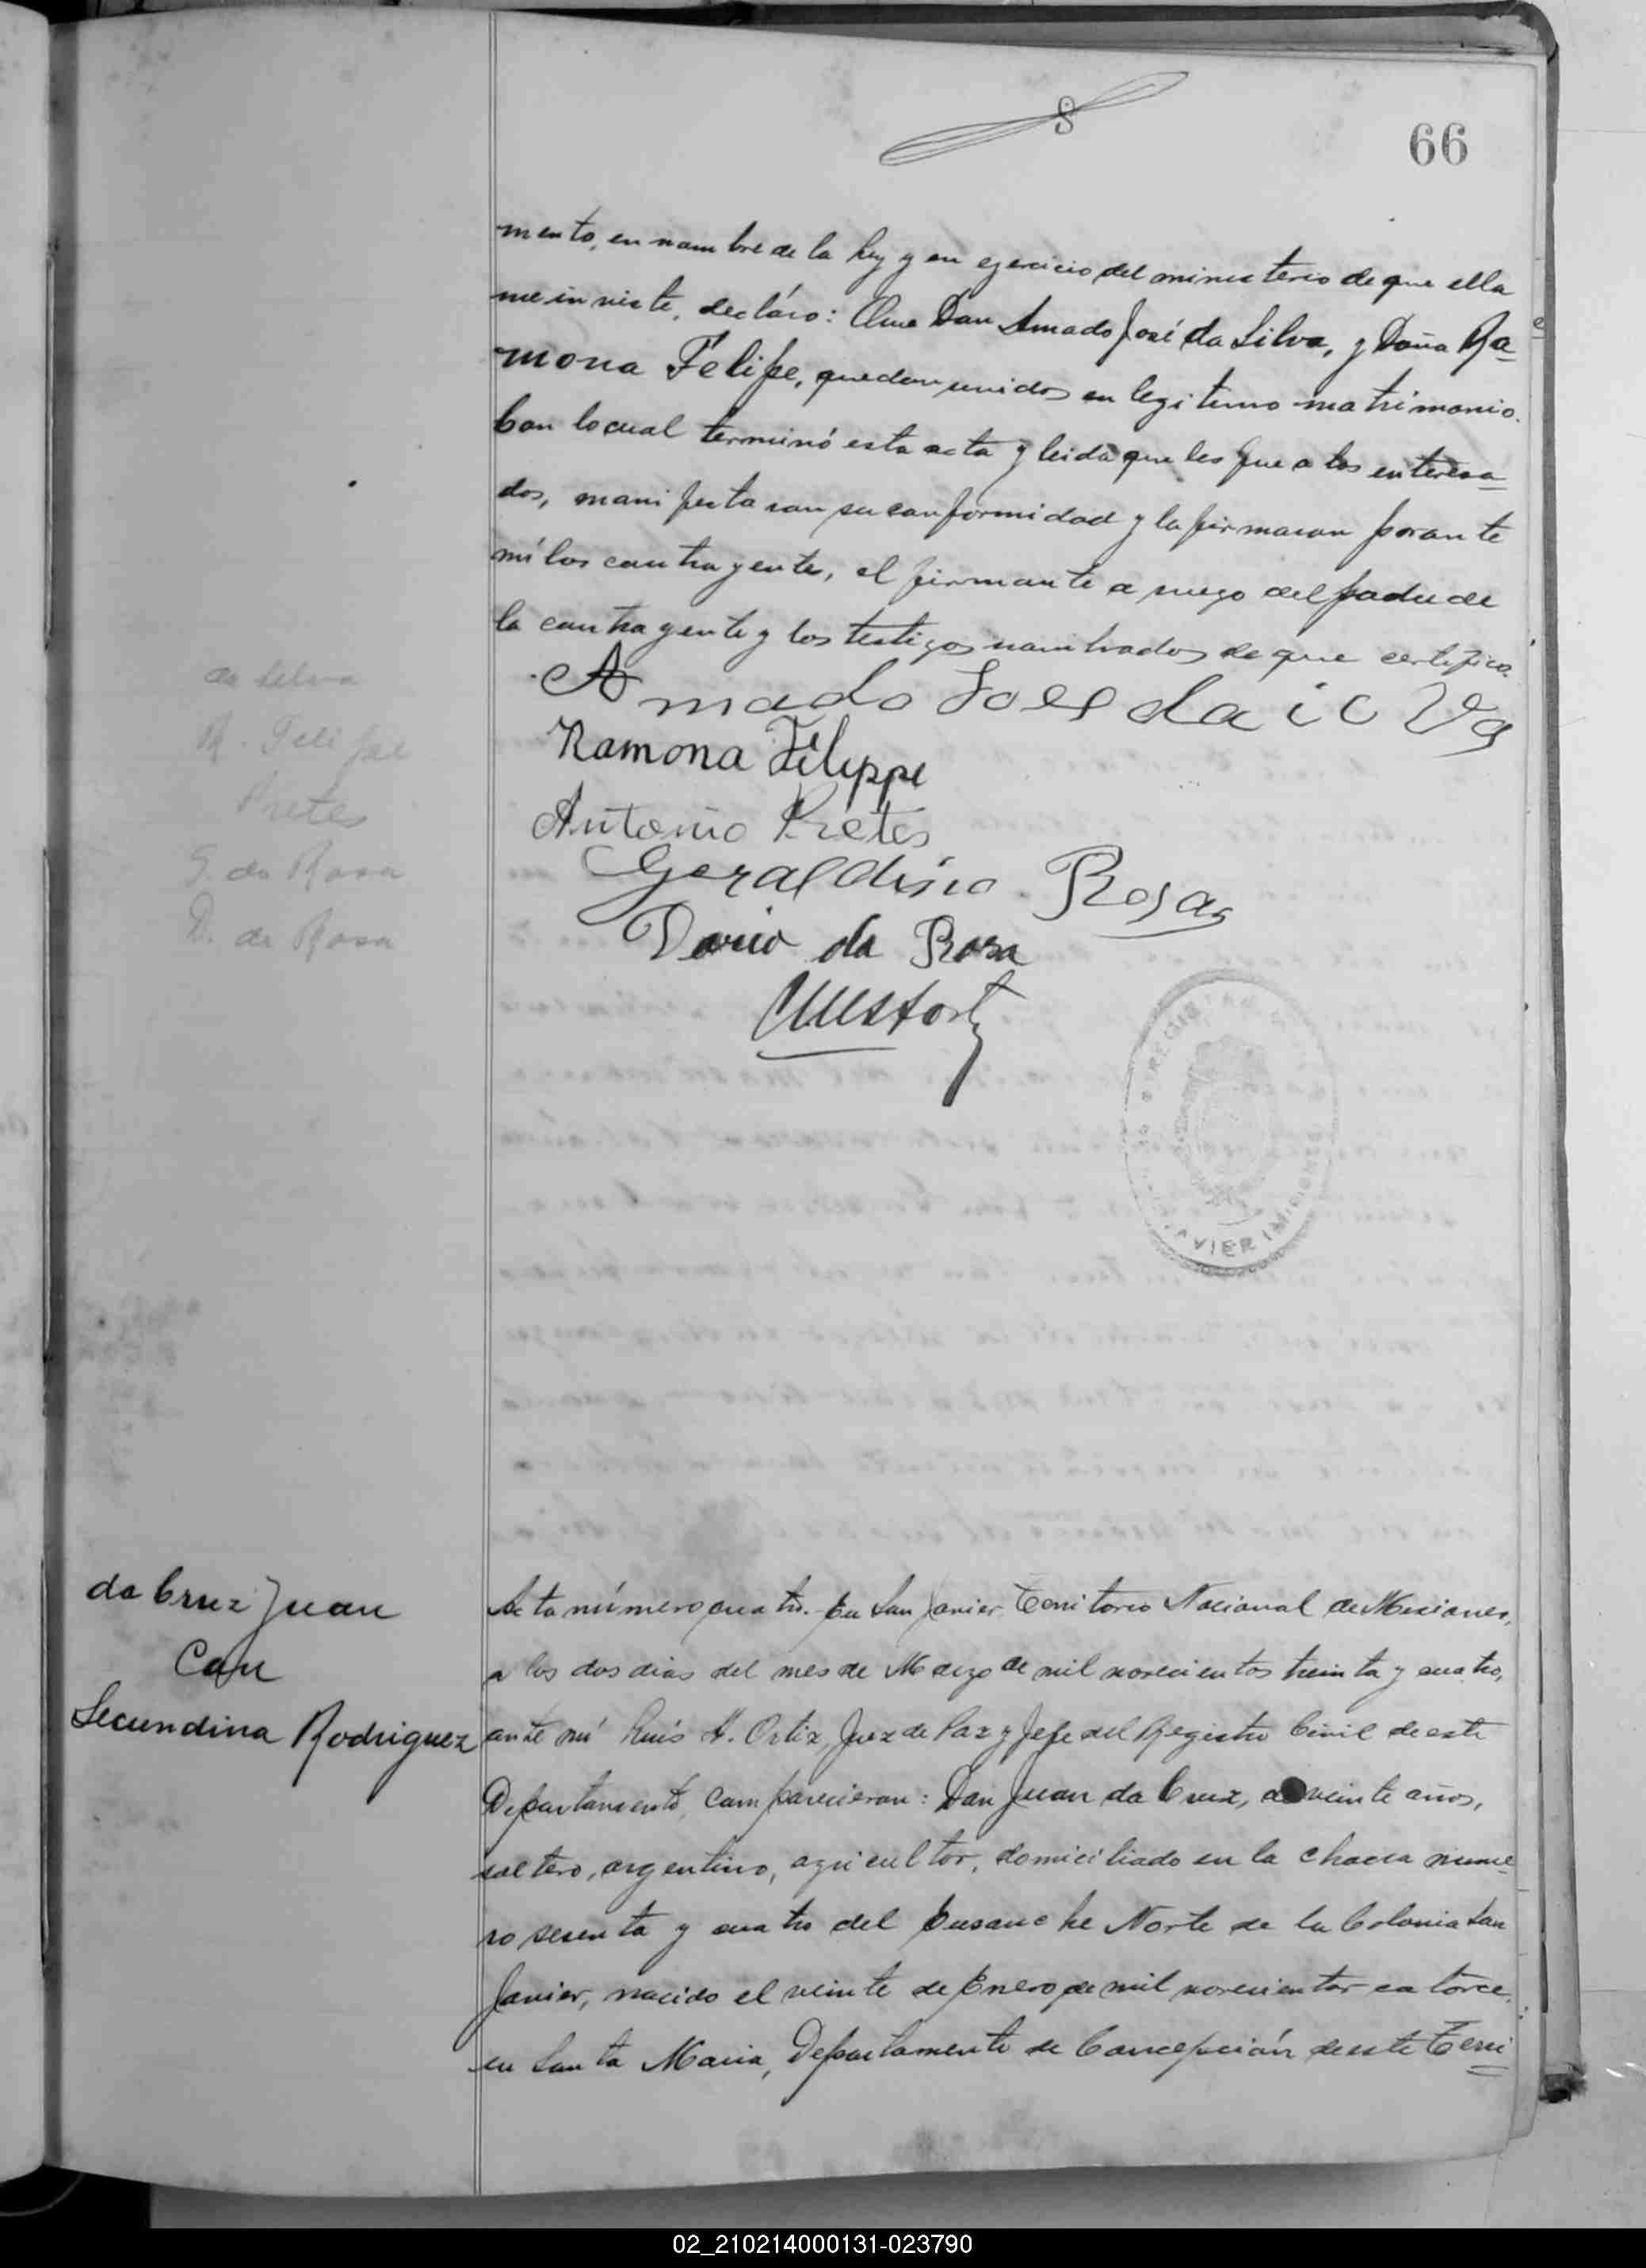 8
66
mento, en nombre de la ley y en ejercicio del ministerio de que ella
me inviste, decláro: Que Don Amado José da Silva, y Doña Ra=
mona Felipe, quedan unidos en legitimo matrimonio.
Con lo cual terminó esta acta y leida que les fue a los interesa=
dos, manifestaron su conformidad y la firmaron por ante
mí los contrayente, el firmante a ruego del padre de
la contrayente y los testigos nombrados de que certifico.
da Silva
R. Felipe
Pretes
G. da Rosa
D. da Rosa
Amado Jose da
Ramona Filippe
Antonio Pretes
Geraldino Rosas
Dario da Rosa
AVIER (MISIONES
da Cruz Juan
Con
Secundina Rodriguez
Acta número cuatro.- En San Javier, Territorio Nacional de Misiones,
a los dos dias del mes de Marzo de mil novecientos treinta y cuatro,
ante mí Luis A. Ortiz, Juez de Paz y Jefe del Registro Civil de este
Departamento, comparecieron: Don Juan da Cruz, de veinte años,
soltero, argentino, agricultor, domiciliado en la chacra nume=
ro sesenta y cuatro del Ensanche Norte de la Colonia San
Javier, nacido el veinte de Enero de mil novecientos catorce,
en Santa Maria, Departamento de Concepción de este Terri=
02_210214000131-023790